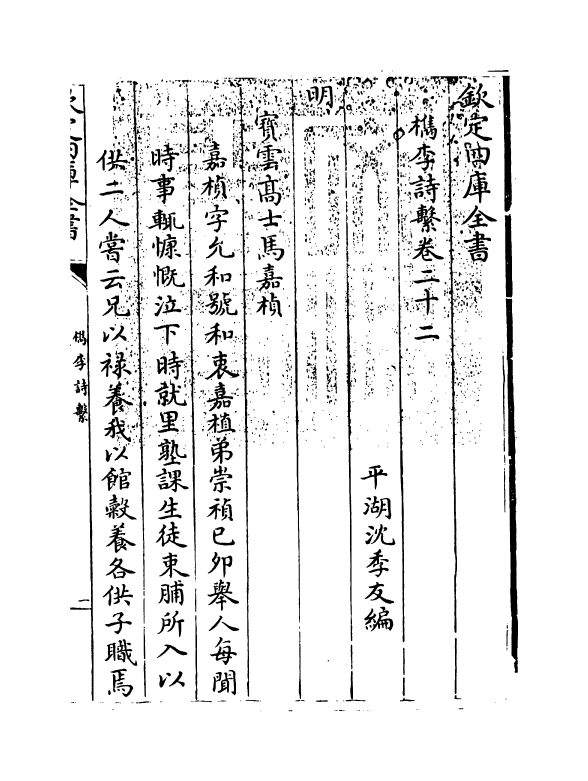 欽定四庫全書
檇李詩繫卷二十二
平湖沈季友編
明
寶雲髙士馬嘉楨
嘉楨字允和號和衷嘉植弟崇禎己卯舉人每聞
時事輒慷慨泣下時就里塾課生徒束脯所入以
供二人嘗云兄以禄養我以館榖養各供子職焉
欽定四庫全書
檇李詩繫
一